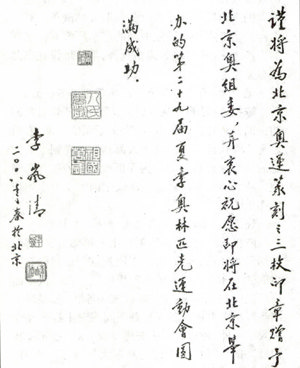 谨将为北京奥运篆刻之三枚印章赠予
北京奥组委，并衷心祝愿即将在北京举
办的第二十九届夏季奥林匹克運動會圆
满成功。
李岚清
二〇〇八年春於北京